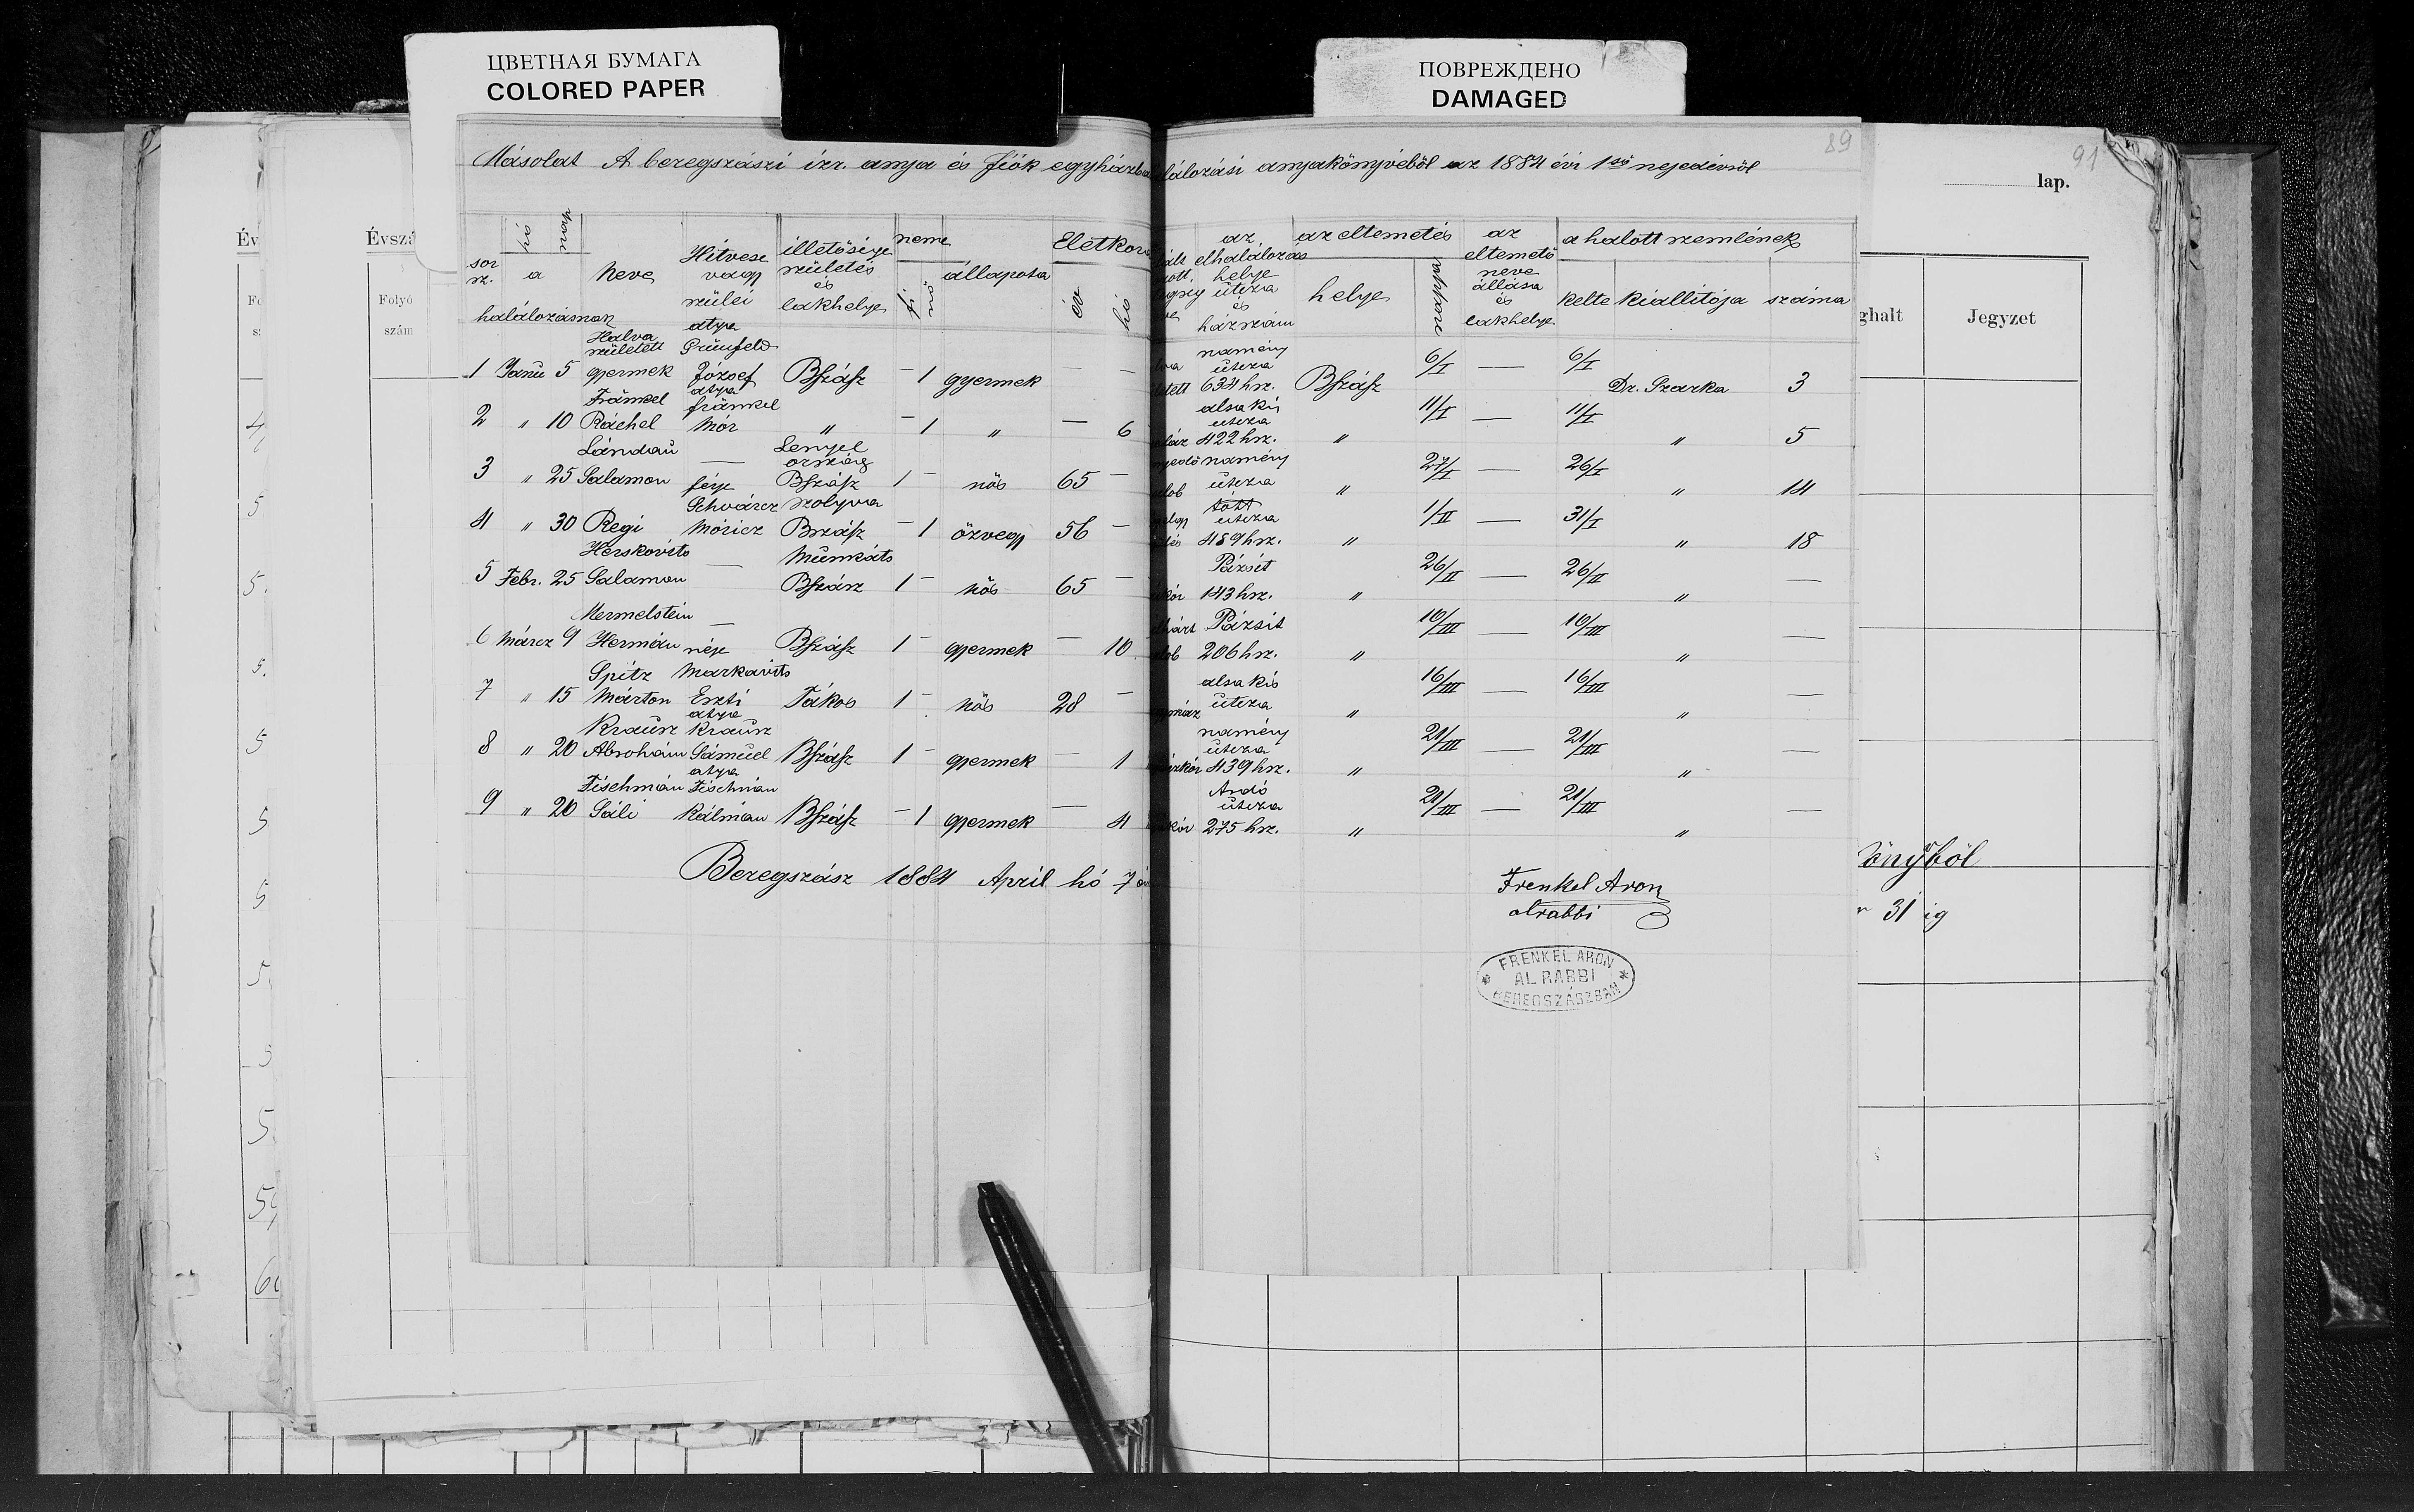 ЦВЕТНАЯ БУМАГА
COLORED PAPER
ПОВРЕЖДЕНО
DAMAGED
89
91
lap.
Másolat A beregszászi izr. anya és fiók egyházba
lálozási anyakönyvéből az 1884 évi 1ső nejedévről
Év
Évszá
Folyó
szám
ghalt
Jegyzet
sor sz. hó nap a halálozásnak neve Hitvese vagy szülei illetősége születés és lakhelye neme fi nő állapota Életkora év hó
az elhalálozás helye úteza és házszám az eltemetés helye napján az eltemető neve állása és lakhelye a halott szemlének kelte kiállitója száma
1 Janu 5 Halva született gyermek atya Grünfeld Jozsef Bszász — 1 gyermek — —
namény úteza 634 hsz. Bszász 6/I — 6/I Dr. Szarka 3
2 " 10 Fränkel Ráchel atya fränkel Mór " — 1 " — 6
alsa kis uteza 422 hsz. " 11/I — 11/I " 5
3 " 25 Lándau Salamon — Lengel ország Bszász 1 — nős 65 —
namény úteza " 27/I — 26/I " 14
4 " 30 Regi férje Schvárcz Móricz Szolyva Bszász — 1 özvegy 56 —
tótt uteza 489 hsz. " 1/II — 31/I " 18
5 Febr. 25 Herskovits Salamon — Munkáts Bszász 1 — nős 65 —
Pázsit 143 hsz. " 26/II — 26/II " —
6 Márcz 9 Mermelstein Hermán — Bszász 1 — gyermek — 10
Pázsit 206 hsz. " 10/III — 10/III " —
7 " 15 Spitz Márton neje Markavits Eszti Tákos 1 — nős 28 —
alsa kis úteza " 16/III — 16/III " —
8 " 20 Krausz Abrohám atya Krausz Sámuel Bszász 1 — gyermek — 1
namény úteza 439 hsz. " 21/III — 21/III " —
9 " 20 Fischmán Sáli atya Fischmán Kálmán Bszász — 1 gyermek — 4
Andó úteza 275 hsz. " 21/III — 21/III " —
Beregszász 1884 April hó 7
Frenkel Aron
alrabbi
FRENKEL ARON
AL RABBI
BEREGSZÁSZBAN
önyből
31 ig